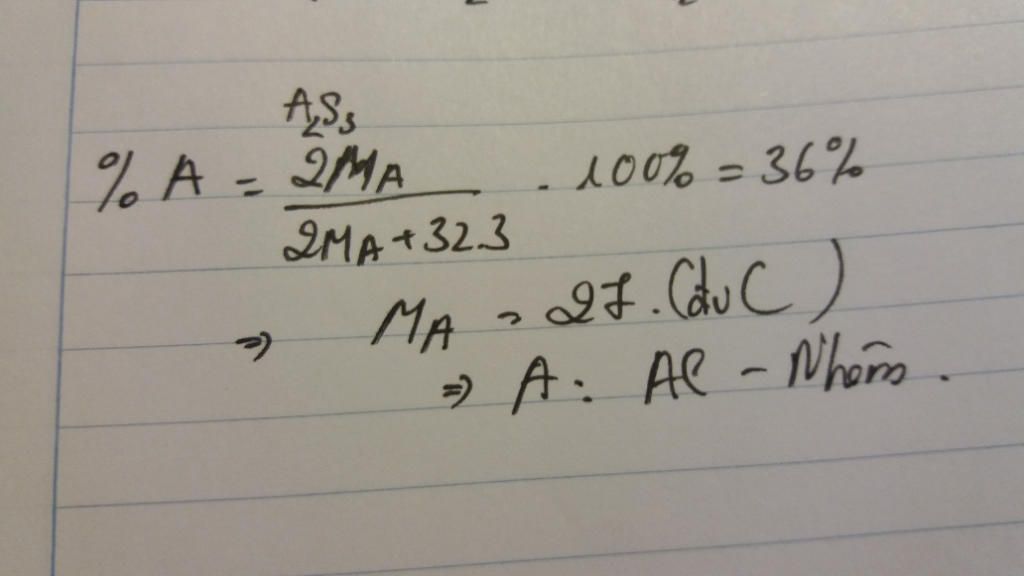 A₂S₃
% A = 2MA / 2MA + 32.3 . 100% = 36%
⇒ MA = 27. (đvC)
⇒ A : Al - Nhôm.